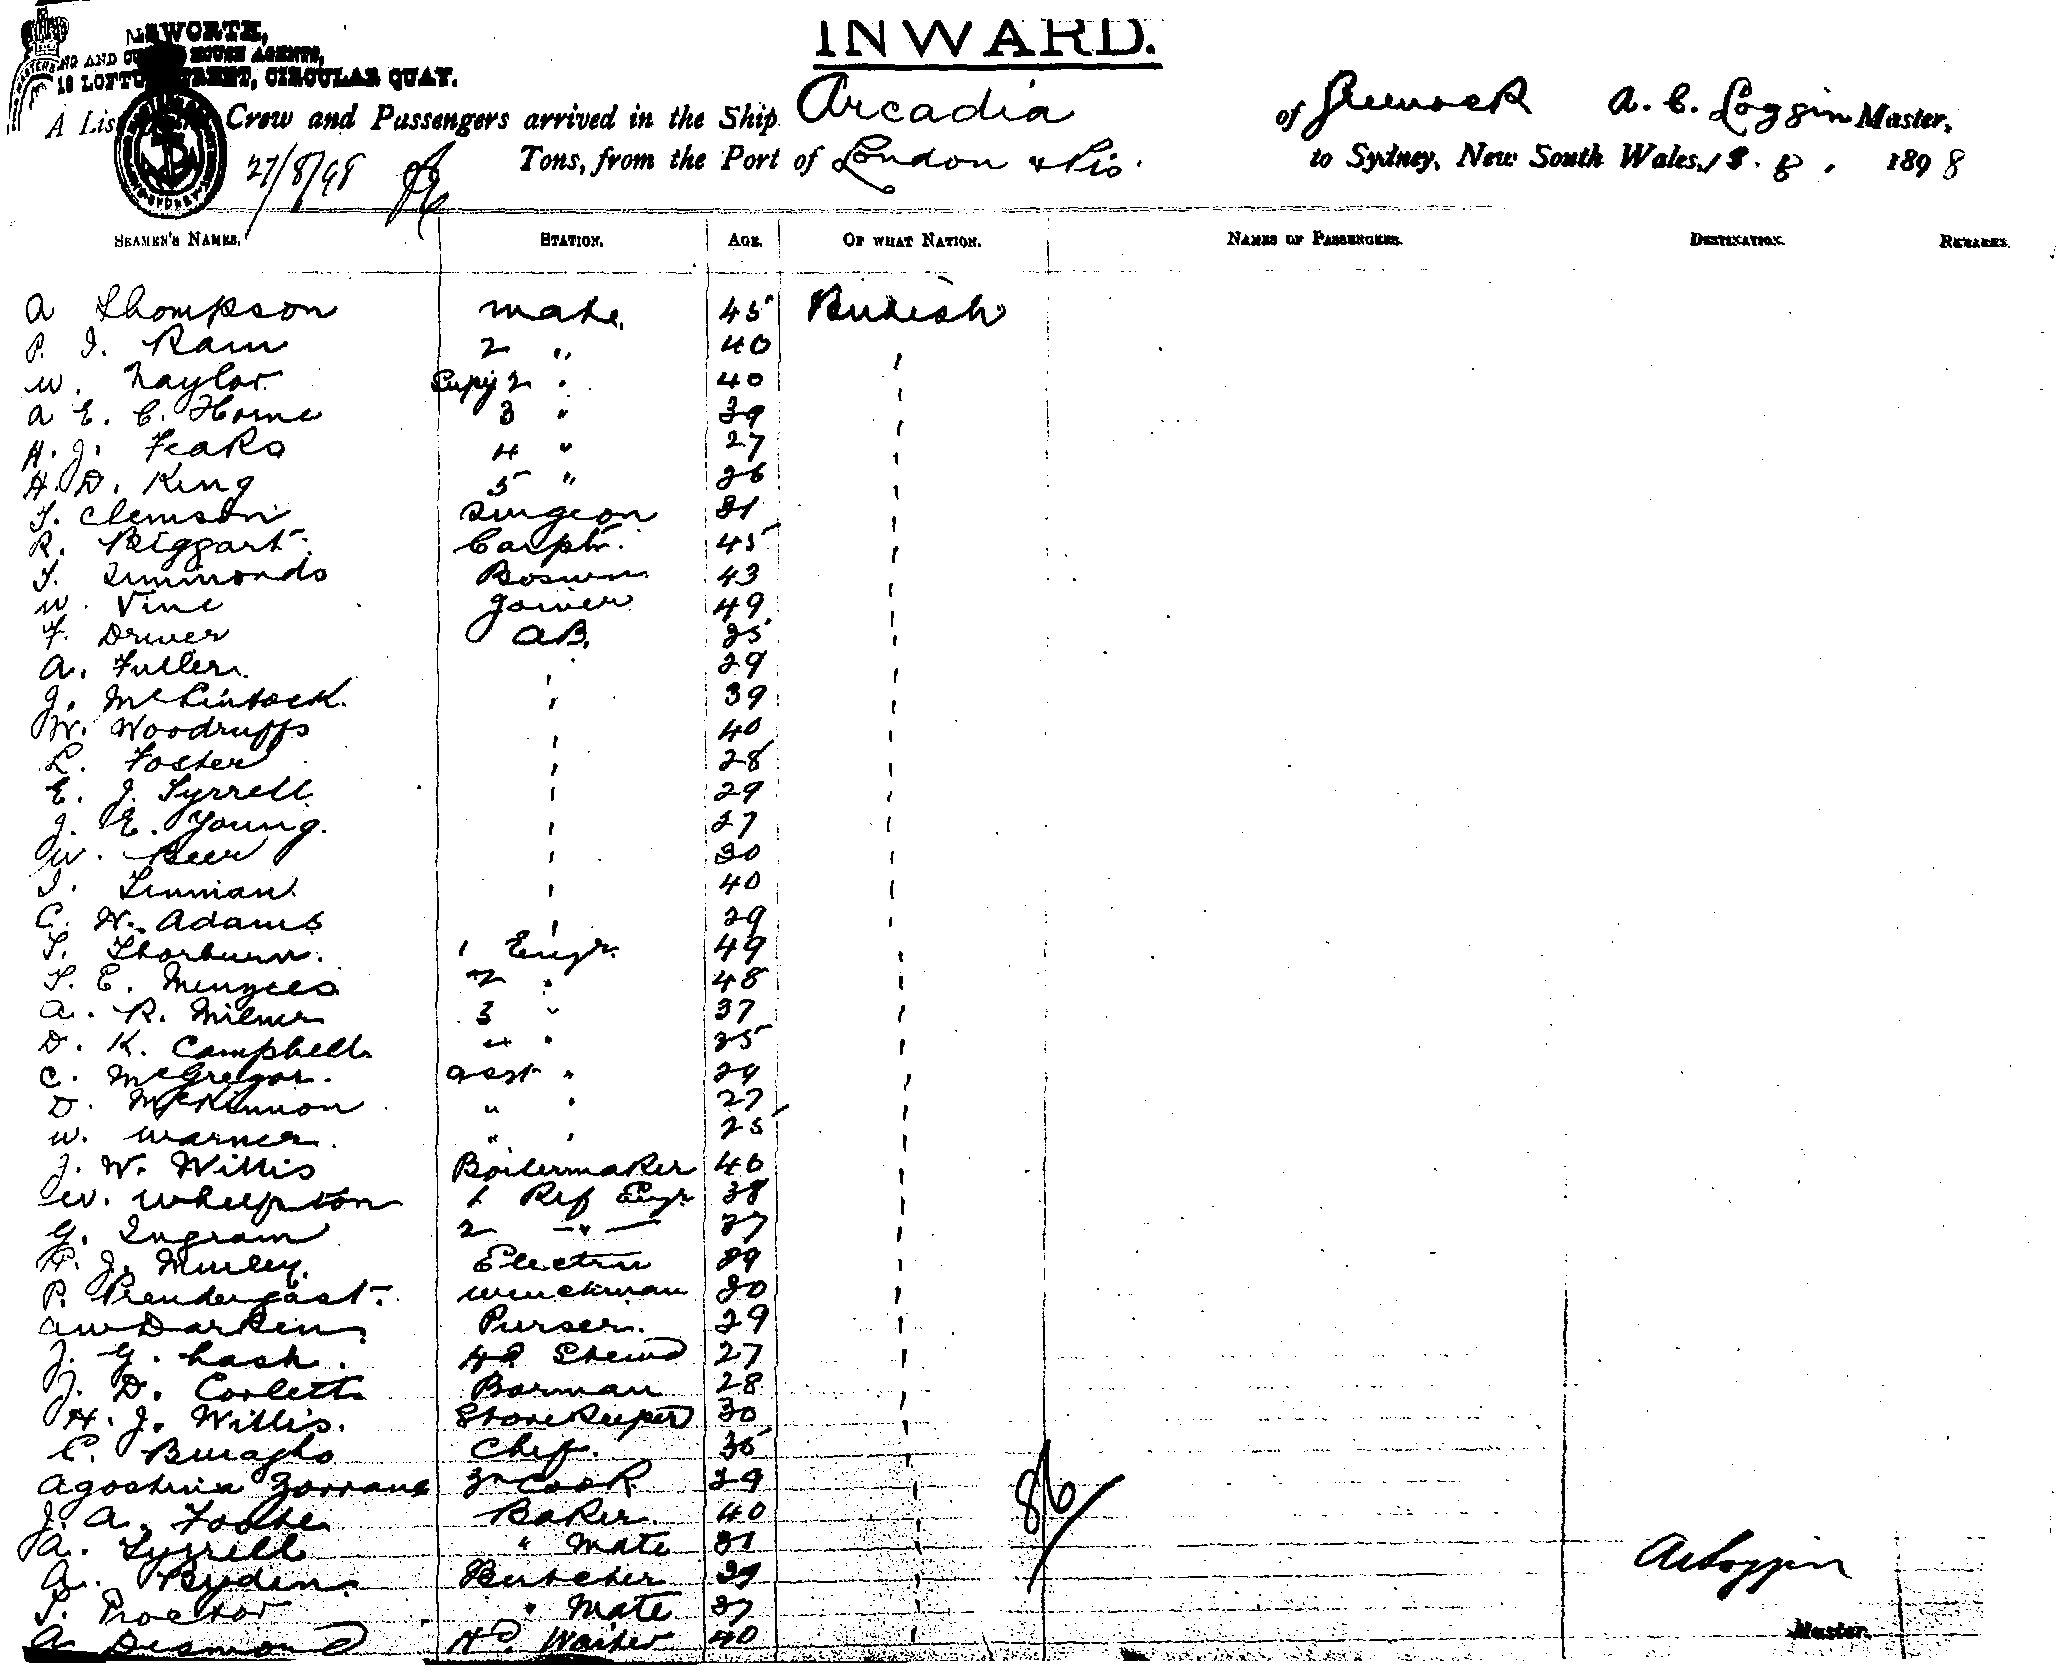 INWARD.
HOUSE AGENTS,
STREET, CIRCULAR QUAY.
A List Crew and Passengers arrived in the Ship Arcadia of Greenock A. C. Loggin Master,
27/8/98 Tons, from the Port of London to Sydney, New South Wales, 8. 1898
SEAMEN'S NAMES. STATION. AGE. OF WHAT NATION. NAMES OF PASSENGERS. DESTINATION. REMARKS.
A Thompson Mate 45 British
P. I. Ram 2 " 40 "
W. Naylor Supy 2 " 40 "
A E. C. Horne 3 " 39 "
H. J. Feaks 4 " 27 "
H. D. King 5 " 26 "
T. Clemson Surgeon 31 "
R. Biggart Carptr. 45 "
T. Simmonds Boswn 43 "
W. Vine Joiner 49 "
F. Driver AB. 25 "
A. Fuller " 29 "
J. McLintock " 39 "
W. Woodruffs " 40 "
L. Foster " 28 "
E. J. Tyrrell " 29 "
J. E. Young " 27 "
W. Beer " 30 "
T. Linman " 40 "
C. H. Adams " 29 "
T. Thorburn 1 Engr. 49 "
T. E. Menzies 2 " 48 "
A. R. Milner 3 " 37 "
D. K. Campbell 4 " 35 "
C. McGregor Asst " 29 "
D. McKinnon " " 27 "
W. Warner " " 25 "
J. W. Willis Boilermaker 40 "
W. Wheepton 1 Ref Engr 38 "
G. Ingram 2 " 37 "
J. Murley Electrn 39 "
P. Prendergast Winchman 30 "
A W Darken Purser 29 "
J. G. Cash Hd Stewd 27 "
J. D. Corlett Barman 28 "
H. J. Willis Storekeeper 30 "
C. Chef 35 "
Agostina 2n Cook 39 "
J. A. Foster Baker 40 "
A. Tyrrell " Mate 31 "
A. Ryden Butcher 39 "
T. Proctor " Mate 37 "
A Desmond Hd. Waiter 40 "
86
A C Loggin
Master.